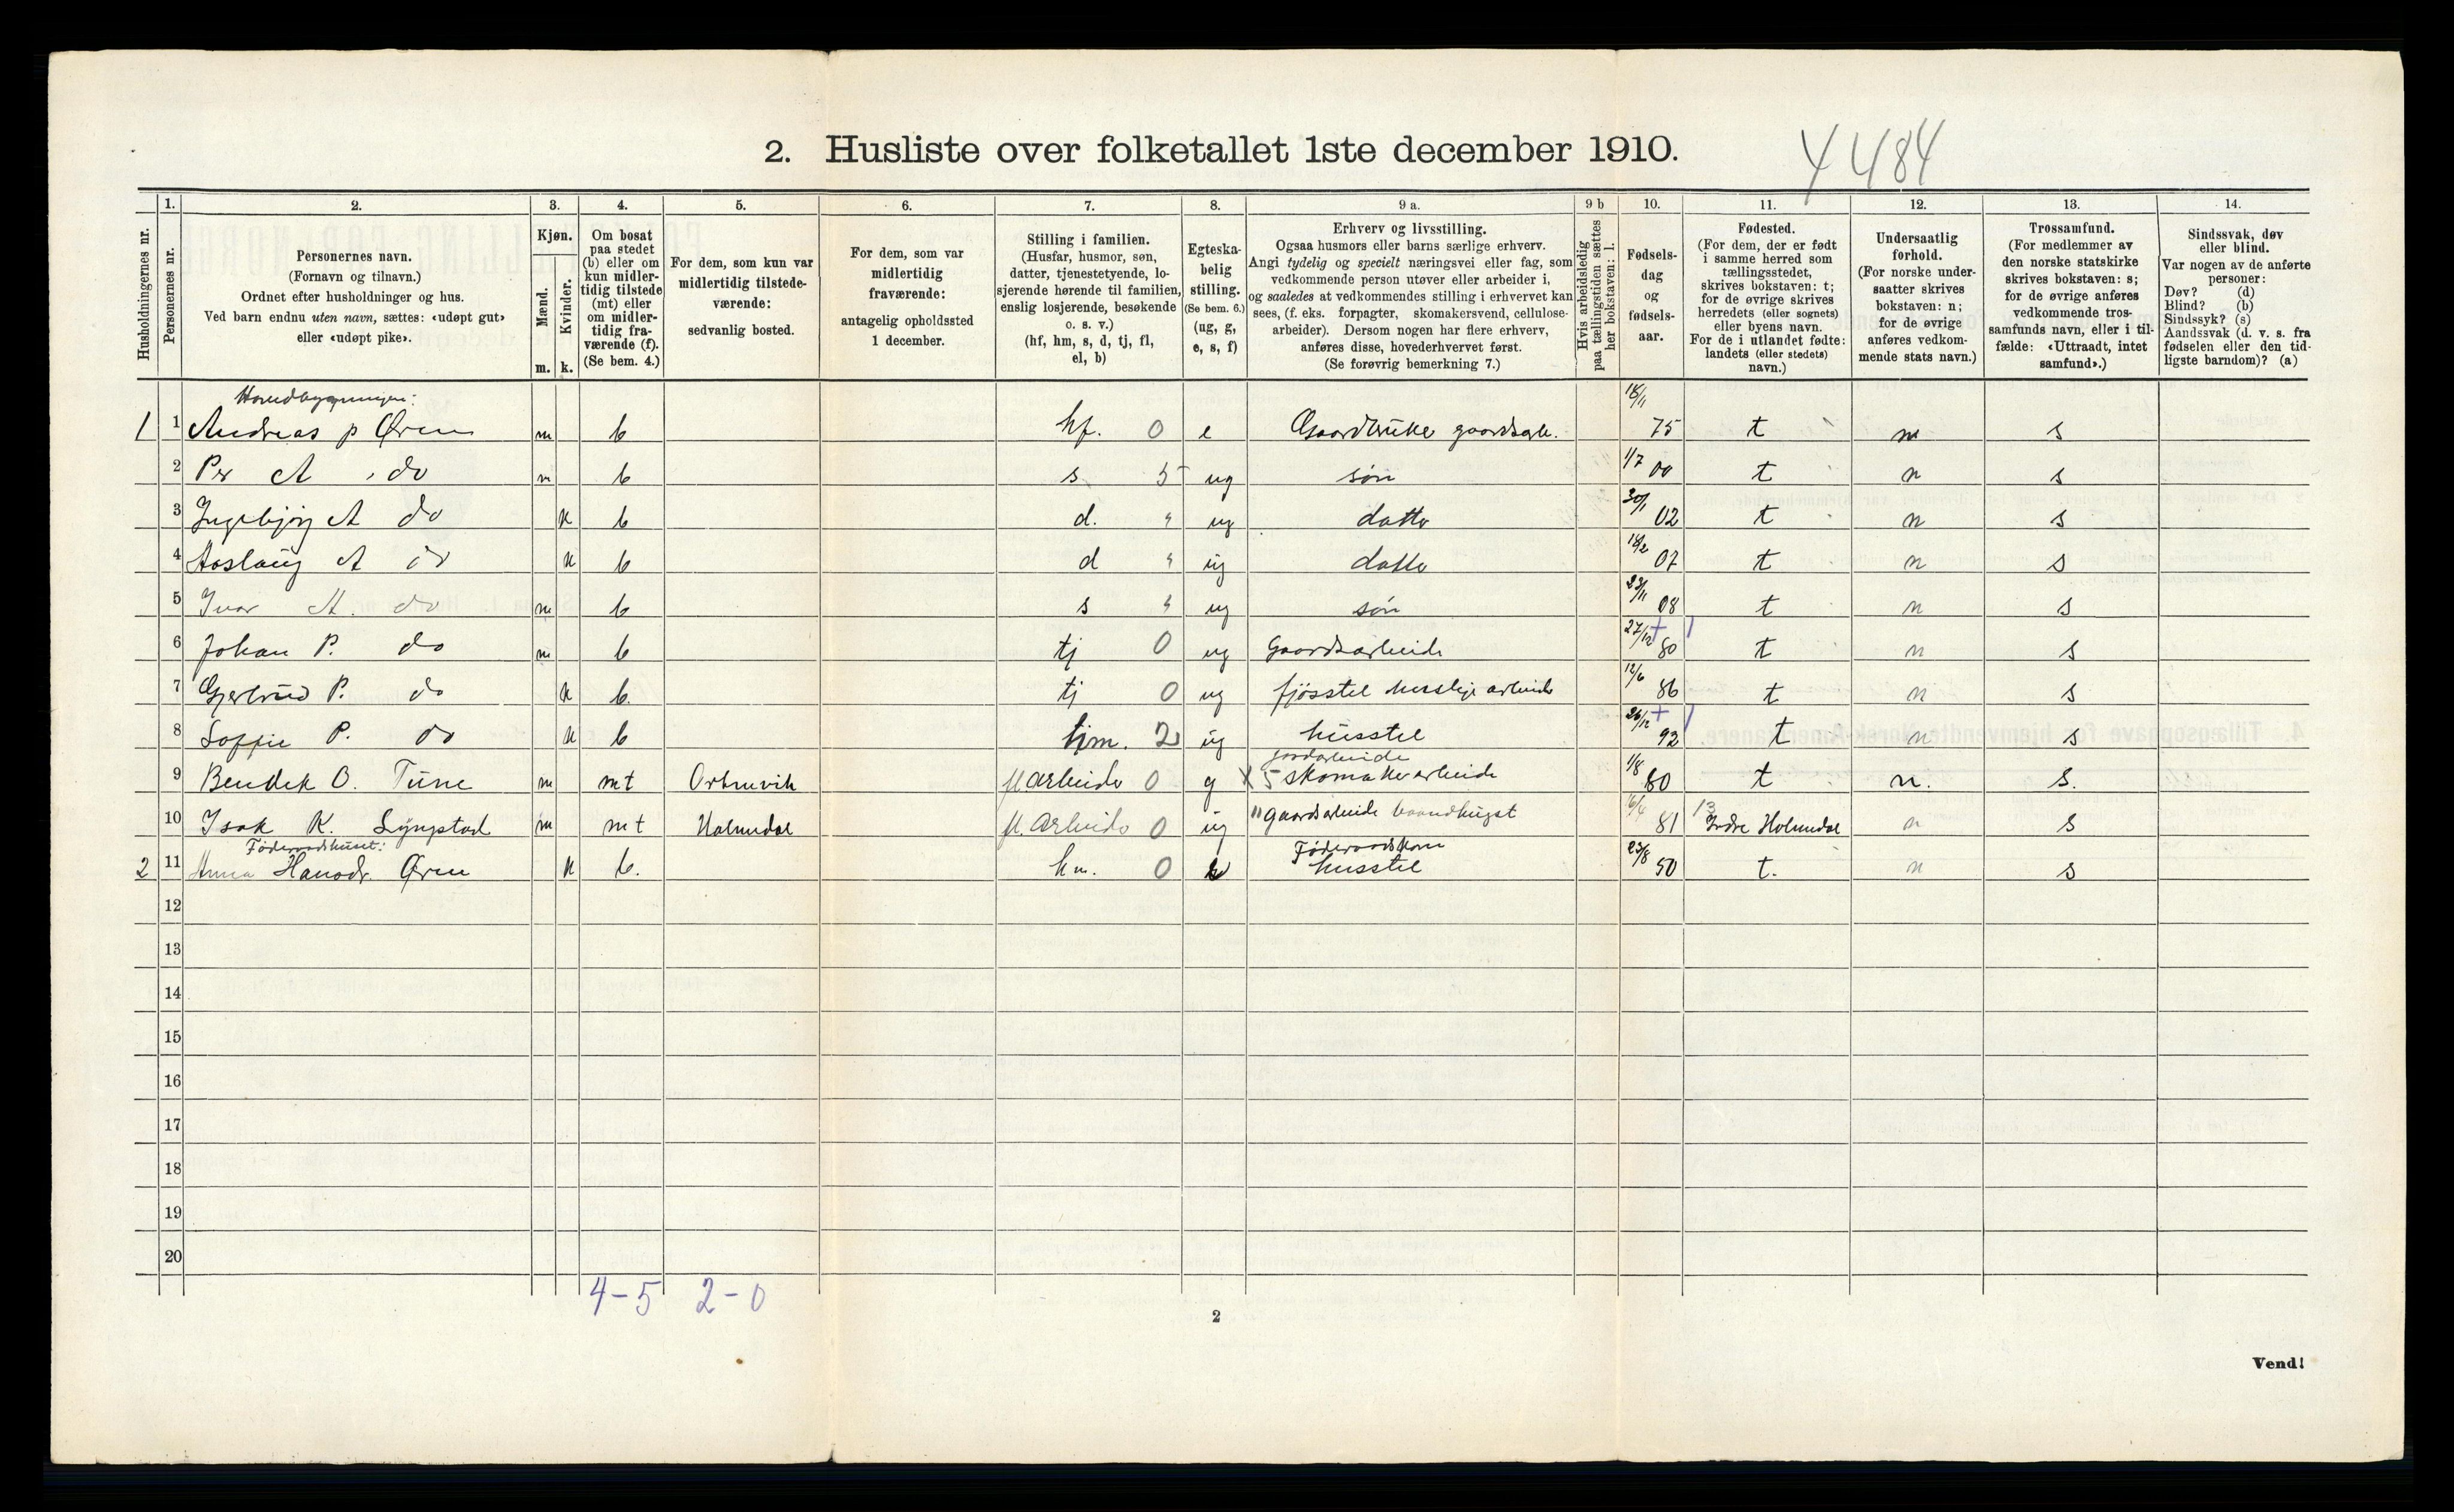 2. Husliste over folketallet 1ste december 1910.
4484
Husholdningernes nr.
1.
Personernes nr.
2.
Personernes navn.
(Fornavn og tilnavn.)
Ordnet efter husholdninger og hus.
Ved barn endnu uten navn, sættes: «udøpt gut»
eller «udøpt pike».
3.
Kjøn.
Mænd.
Kvinder.
m. k.
4.
Om bosat
paa stedet
(b) eller om
kun midler-
tidig tilstede
(mt) eller
om midler-
tidig fra-
værende (f).
(Se bem. 4.)
5.
For dem, som kun var
midlertidig tilstede-
værende:
sedvanlig bosted.
6.
For dem, som var
midlertidig
fraværende:
antagelig opholdssted
1 december.
7.
Stilling i familien.
(Husfar, husmor, søn,
datter, tjenestetyende, lo-
sjerende hørende til familien,
enslig losjerende, besøkende
o. s. v.)
(hf, hm, s, d, tj, fl,
el, b)
8.
Egteska-
belig
stilling.
(Se bem. 6.)
(ug, g,
e, s, f)
9 a.
Erhverv og livsstilling.
Ogsaa husmors eller barns særlige erhverv.
Angi tydelig og specielt næringsvei eller fag, som
vedkommende person utøver eller arbeider i,
og saaledes at vedkommendes stilling i erhvervet kan
sees, (f. eks. forpagter, skomakersvend, cellulose-
arbeider). Dersom nogen har flere erhverv,
anføres disse, hovederhvervet først.
(Se forøvrig bemerkning 7.)
9 b
Hvis arbeidsledig
paa tællingstiden sættes
her bokstaven: l.
10.
Fødsels-
dag
og
fødsels-
aar.
11.
Fødested.
(For dem, der er født
i samme herred som
tællingsstedet,
skrives bokstaven: t;
for de øvrige skrives
herredets (eller sognets)
eller byens navn.
For de i utlandet fødte:
landets (eller stedets)
navn.)
12.
Undersaatlig
forhold.
(For norske under-
saatter skrives
bokstaven: n;
for de øvrige
anføres vedkom-
mende stats navn.)
13.
Trossamfund.
(For medlemmer av
den norske statskirke
skrives bokstaven: s;
for de øvrige anføres
vedkommende tros-
samfunds navn, eller i til-
fælde: «Uttraadt, intet
samfund».)
14.
Sindssvak, døv
eller blind.
Var nogen av de anførte
personer:
Døv? (d)
Blind? (b)
Sindssyk? (s)
Aandssvak (d. v. s. fra
fødselen eller den tid-
ligste barndom)? (a)
1 1 Andreas P Øren m b hf. 0 e 75 t n s
2 Per A do m b s 5 ug søn 1/7 00 t n s
3 Ingebjørg A do k b d. " ug datter 30/1 02 t n s
4 Aaslaug A do k b d " ug datter 18/2 07 t n s
5 Ivar A. do m b s " ug søn 23/11 08 t n s
6 Johan P. do m b tj 0 ug Gaardsarbeide 27/12 80 t n s
7 Gjertrud P. do k b. tj 0 ug fjøsstel huslige arbeide 12/6 86 t n s
8 Soffie P. do k b tjm. 2 ug husstel 26/12 92 t n s
jordarbeide
9 Bendik O. Tune m mt fl arbeider 0 g x 5 skomakerarbeide 1/8 80 t n. s.
10 Isak K. Lyngstad m mt Holmedal fl. arbeider 0 ug " gaardsarbeide 16/4 81 13 Indre Holmedal n s
Føderaadshuset:
Føderaadskone
2 11 Anna Hansdr. Øren k b. hm. 0 husstel 23/8 50 t. n s
12
13
14
15
16
17
18
19
20
4-5 2-0
2
Vend!